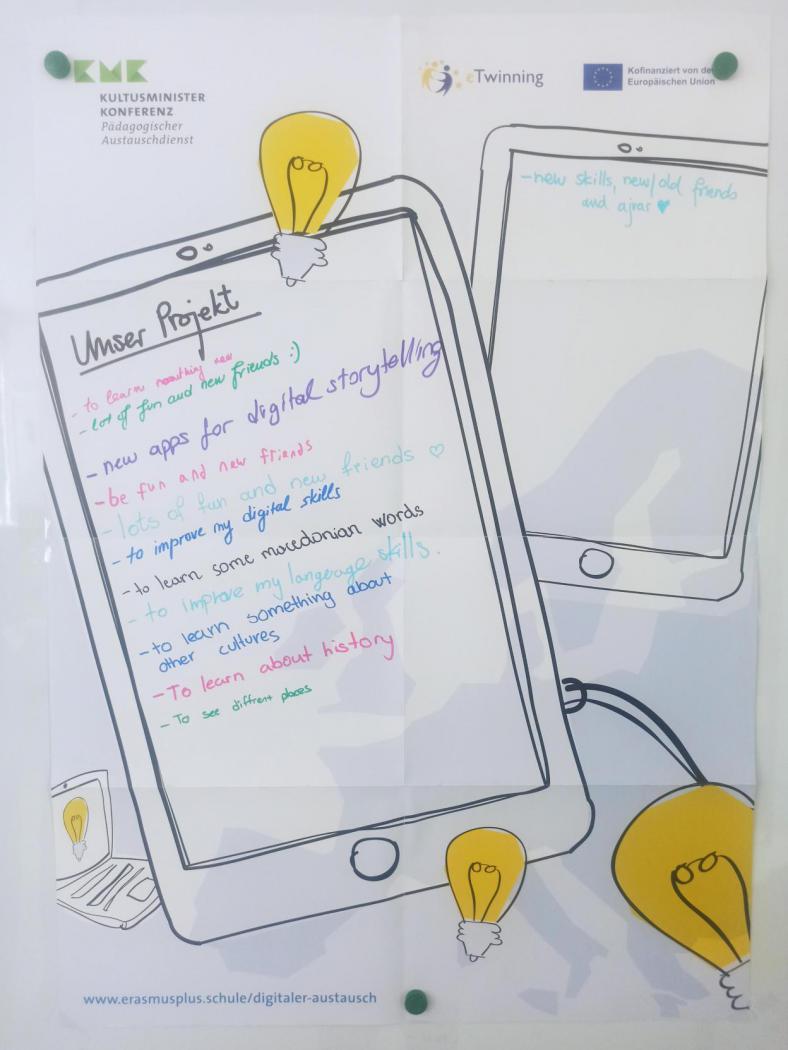 KMK
KULTUSMINISTER
KONFERENZ
Pädagogischer
Austauschdienst
eTwinning
Kofinanziert von der
Europäischen Union
-new skills, new/old friends
and ajrar ♥
Unser Projekt
- to learn something new
- lot of fun and new friends :)
- new apps for digital storytelling
- be fun and new friends
- lots of fun and new friends ♡
- to improve my digital skills
- to learn some macedonian words
- to improve my langerage skills.
- to learn something about
other cultures
- To learn about history
- To see diffrent places
www.erasmusplus.schule/digitaler-austausch